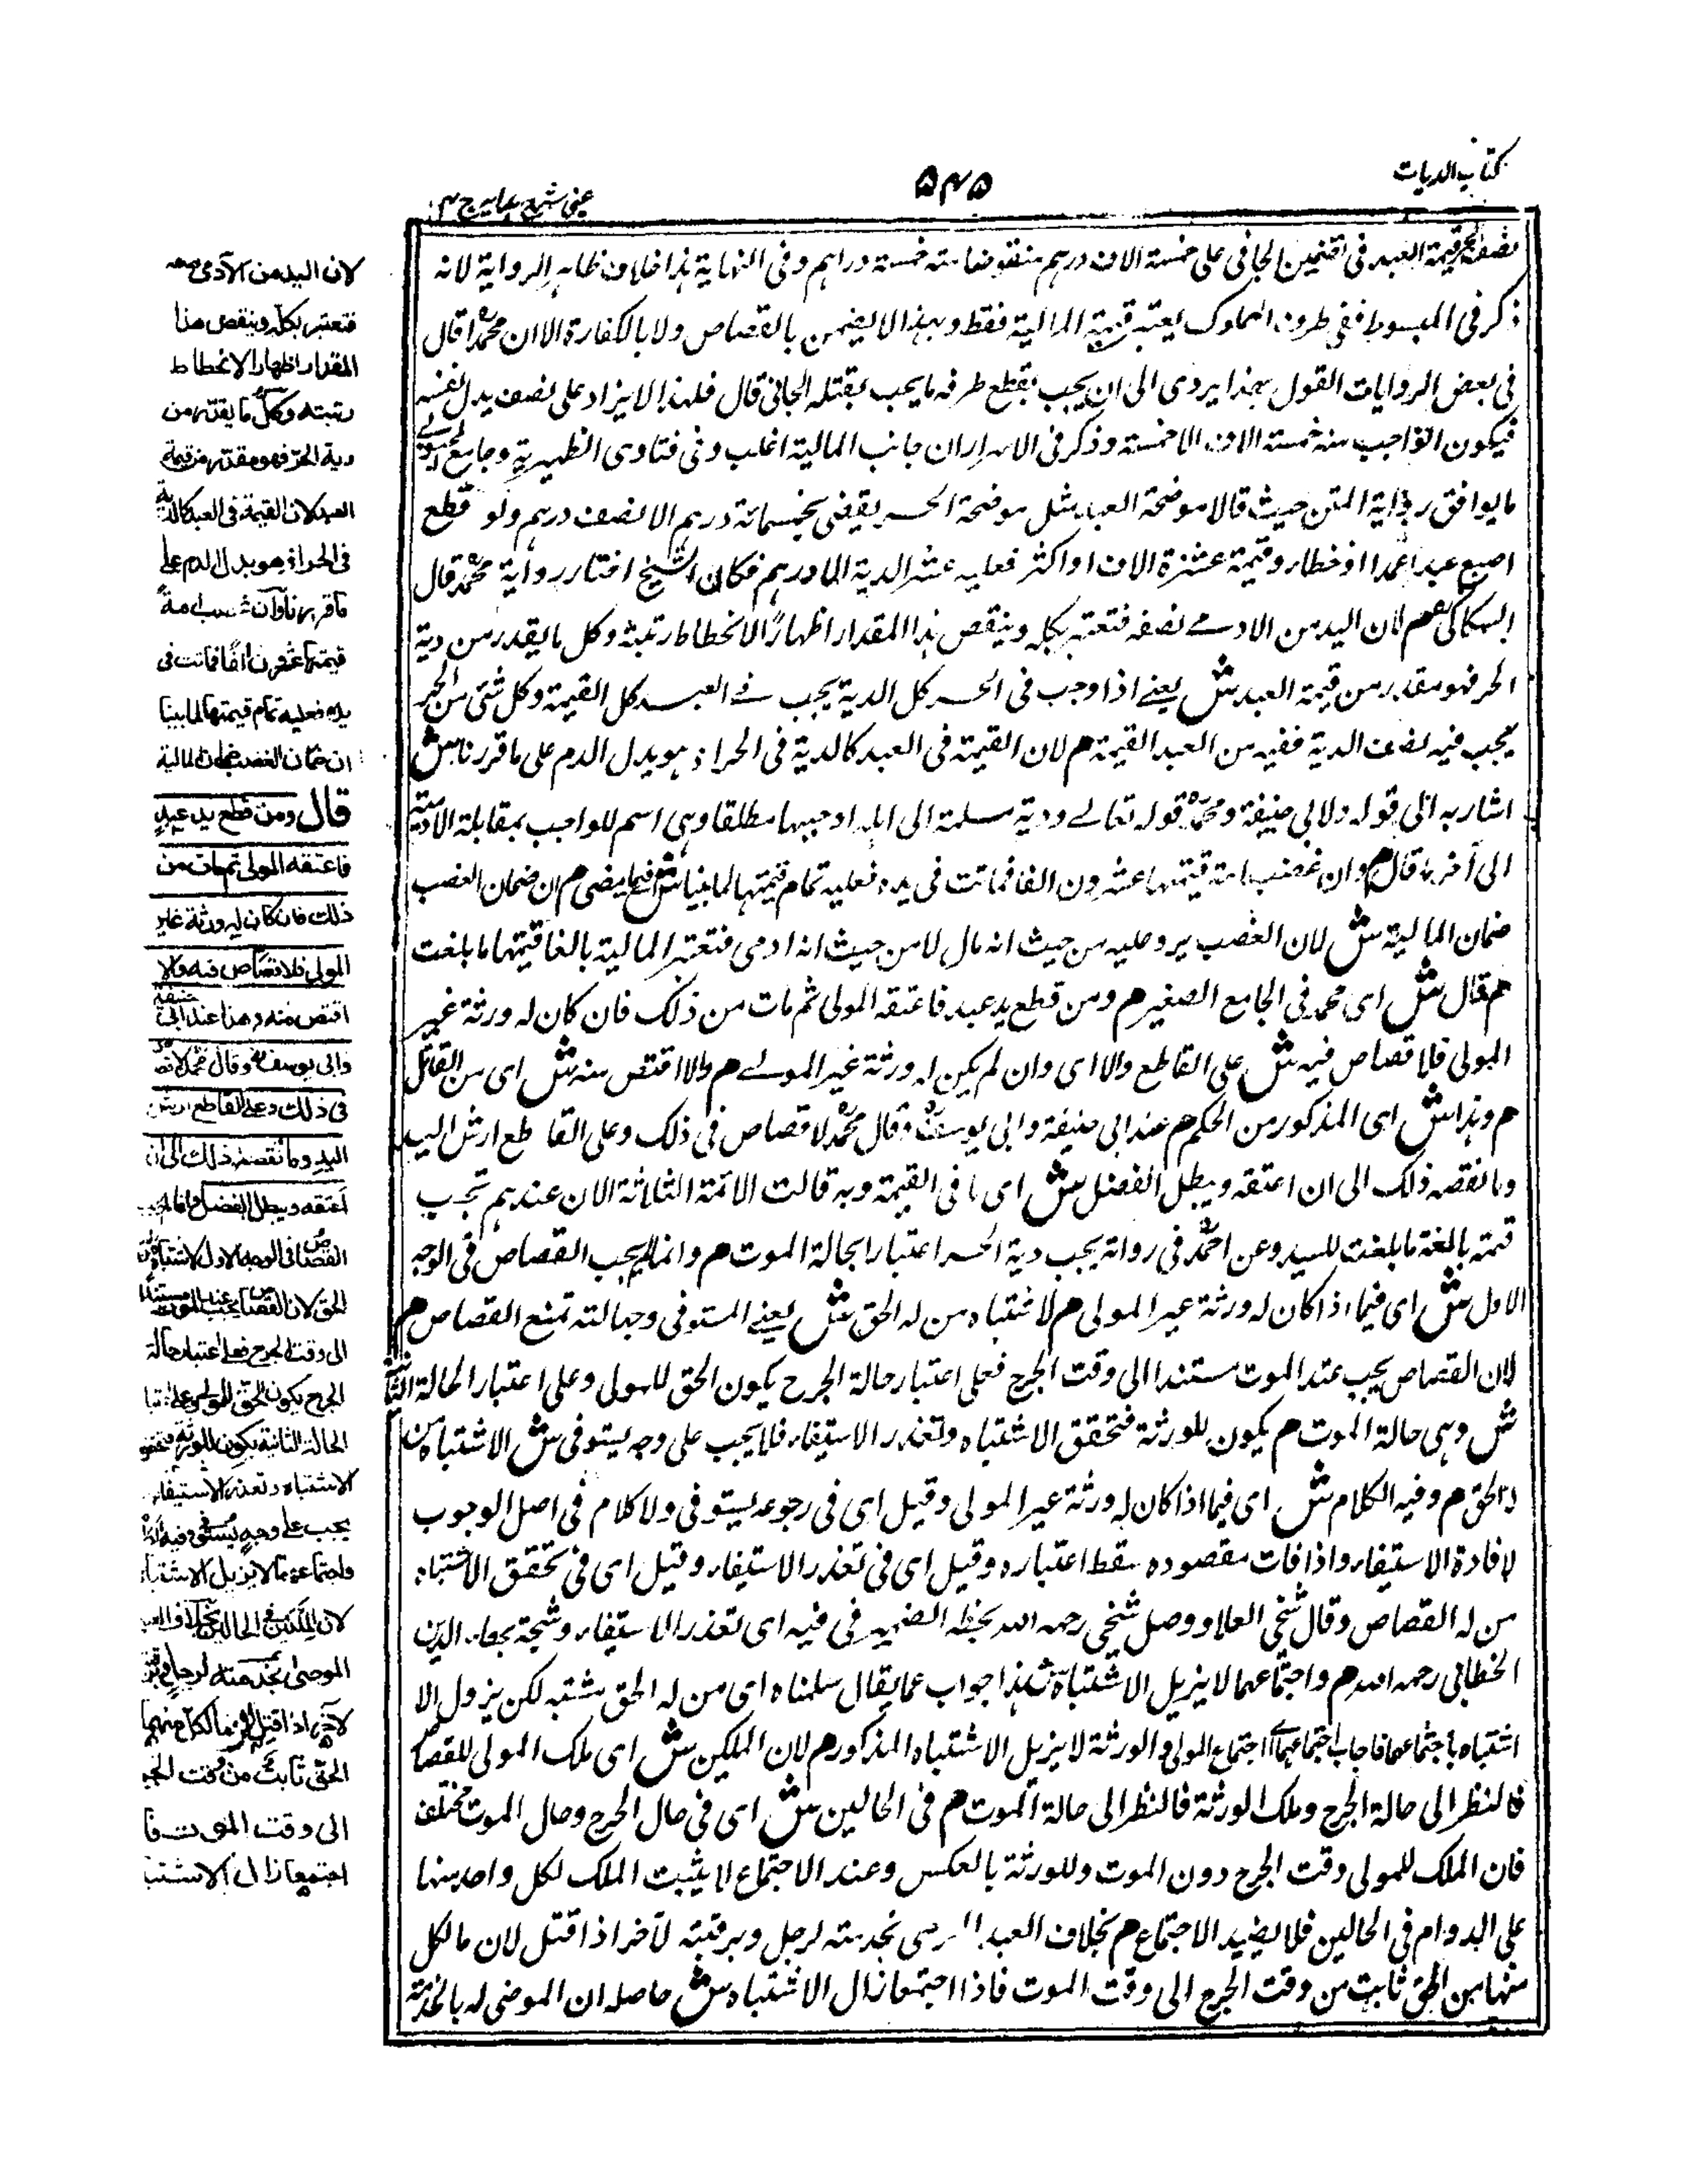 كتاب الديات
٥٤٥
عينى شرح هدايه ج ٤
نصف قيمة العبد فى تضمين الجانى على خمسة الاف درهم منقوضا منه خمسة دراهم وفى النهاية هذا خلاف ظاهر الرواية لانه
ذكر فى المبسوط ففى طرف المملوك يعتبر فيه المالية فقط وبهذا لا يضمن بالقصاص ولا بالكفارة الا ان محمدا قال
فى بعض الروايات القول بهذا يؤدى الى ان يجب بقطع طرفه ما يجب بقتله الجانى قال فلهذا لا يزاد على نصف بدل نفسه
فيكون الواجب منه خمسة الاف الا خمسة وذكر فى الاسرار ان جانب المالية اغلب وفى فتاوى الظهيرية وجامع
ما يوافق رواية المتن حيث قالا موضحة العبد مثل موضحة الحر يقضى بخمسمائة درهم الا نصف درهم ولو قطع
اصبع عبد عمدا او خطاء وقيمته عشرة الاف او اكثر فعليه عشر الدية الا درهم فكان الشيخ اختار رواية محمد قال
السكاكى م لان اليد من الادمى نصفه فتعتبر بكله وينقص هذا المقدار اظهارا لانحطاط رتبته وكل ما يقدر من دية
الحر فهو مقدر من قيمة العبد ش يعنى اذا وجب فى الحر كل الدية يجب فى العبد كل القيمة وكل شئ من الحر
يجب فيه نصف الدية ففيه من العبد القيمة م لان القيمة فى العبد كالدية فى الحر اذ هو بدل الدم على ما قررنا ش
اشار به الى قوله ولابى حنيفة ومحمد قوله تعالى ودية مسلمة الى اهله اوجبها مطلقا وهى اسم للواجب بمقابلة الادمية
الى آخر ما قال م وان غصب امة قيمتها عشرون الفا فماتت فى يده فعليه تمام قيمتها لما بينا ش فيما مضى م ان ضمان الغصب
ضمان المالية ش لان الغصب يرد عليه من حيث انه مال لا من حيث انه ادمى فتعتبر المالية بالغا قيمتها ما بلغت
م قال ش اى محمد فى الجامع الصغير م ومن قطع يد عبد فاعتقه المولى ثم مات من ذلك فان كان له ورثة غير
المولى فلا قصاص فيه ش على القاطع والا اى وان لم يكن له ورثة غير المولى م والا اقتص منه ش اى من القاتل
م وهذا ش اى المذكور من الحكم م عند ابى حنيفة وابى يوسف وقال محمد لا قصاص فى ذلك وعلى القاطع ارش اليد
وما نقصه ذلك الى ان اعتقه ويبطل الفضل ش اى ما فى القيمة وبه قالت الائمة الثلاثة الا ان عندهم تجب
قيمته بالغة ما بلغت للسيد وعن احمد فى رواية يجب دية الحر اعتبارا بحالة الموت م وانما لم يجب القصاص فى الوجه
الاول ش اى فيما اذا كان له ورثة غير المولى م لاشتباه من له الحق ش يعنى المستوفى وجهالته تمنع القصاص م
لان القصاص يجب عند الموت مستندا الى وقت الجرح فعلى اعتبار حالة الجرح يكون الحق للمولى وعلى اعتبار الحالة الثانية
ش وهى حالة الموت م يكون للورثة فتحقق الاشتباه وتعذر الاستيفاء فلا يجب على وجه يستوفى ش الاشتباه من
له الحق م وفيه الكلام ش اى فيما اذا كان له ورثة غير المولى وقيل اى فى رجوعه يستوفى ولا كلام فى اصل الوجوب
لافادة الاستيفاء واذا فات مقصوده سقط اعتباره وقيل اى فى تعذر الاستيفاء وقيل اى فى تحقق الاشتباه
من له القصاص وقال شيخى العلاء ووصل شيخى رحمه الله بخطه الضمير فى فيه اى تعذر الاستيفاء وشيخه جلال الدين
الخطابى رحمه الله م واجتماعهما لا يزيل الاشتباه ش هذا جواب عما يقال سلمناه اى من له الحق مشتبه لكن يزول الا
اشتباه باجتماعهما فاجاب اجتماعهما اى اجتماع المولى والورثة لا يزيل الاشتباه المذكور م لان الملكين ش اى ملك المولى للقصاص
فالنظر الى حالة الجرح وملك الورثة فالنظر الى حالة الموت م فى الحالين ش اى فى حال الجرح وحال الموت مختلف
فان الملك للمولى وقت الجرح دون الموت وللورثة بالعكس وعند الاجتماع لا يثبت الملك لكل واحد منهما
على الدوام فى الحالين فلا يفيد الاجتماع م بخلاف العبد الموصى بخدمته لرجل وبرقبته لآخر اذا قتل لان ما لكل
منهما من الحق ثابت من وقت الجرح الى وقت الموت فاذا اجتمعا زال الاشتباه ش حاصله ان الموصى له بالخدمة
لان اليد من الآدمى نصفه
فتعتبر بكله وينقص هذا
المقدار اظهارا لانحطاط
رتبته وكل ما يقدر من
دية الحر فهو مقدر من قيمة
العبد لان القيمة فى العبد كالدية
فى الحر اذ هو بدل الدم على
ما قررناه وان غصب امة
قيمتها عشرون الفا فماتت فى
يده فعليه تمام قيمتها لما بينا
ان ضمان الغصب ضمان المالية
قال ومن قطع يد عبد
فاعتقه المولى ثم مات من
ذلك فان كان له ورثة غير
المولى فلا قصاص فيه والا
اقتص منه وهذا عند ابى حنيفة
وابى يوسف وقال محمد لا قصاص
فى ذلك وعلى القاطع ارش
اليد وما نقصه ذلك الى ان
اعتقه ويبطل الفضل وانما لم يجب
القصاص فى الوجه الاول لاشتباه من له
الحق لان القصاص يجب عند الموت مستندا
الى وقت الجرح فعلى اعتبار حالة
الجرح يكون الحق للمولى وعلى اعتبار
الحالة الثانية يكون للورثة فتحقق
الاشتباه وتعذر الاستيفاء
يجب على وجه يستوفى وفيه الكلام
واجتماعهما لا يزيل الاشتباه
لان الملكين فى الحالين بخلاف العبد
الموصى بخدمته لرجل وبرقبته
لآخر اذا قتل لان ما لكل منهما
الحق ثابت من وقت الجرح
الى وقت الموت فاذا
اجتمعا زال الاشتباه